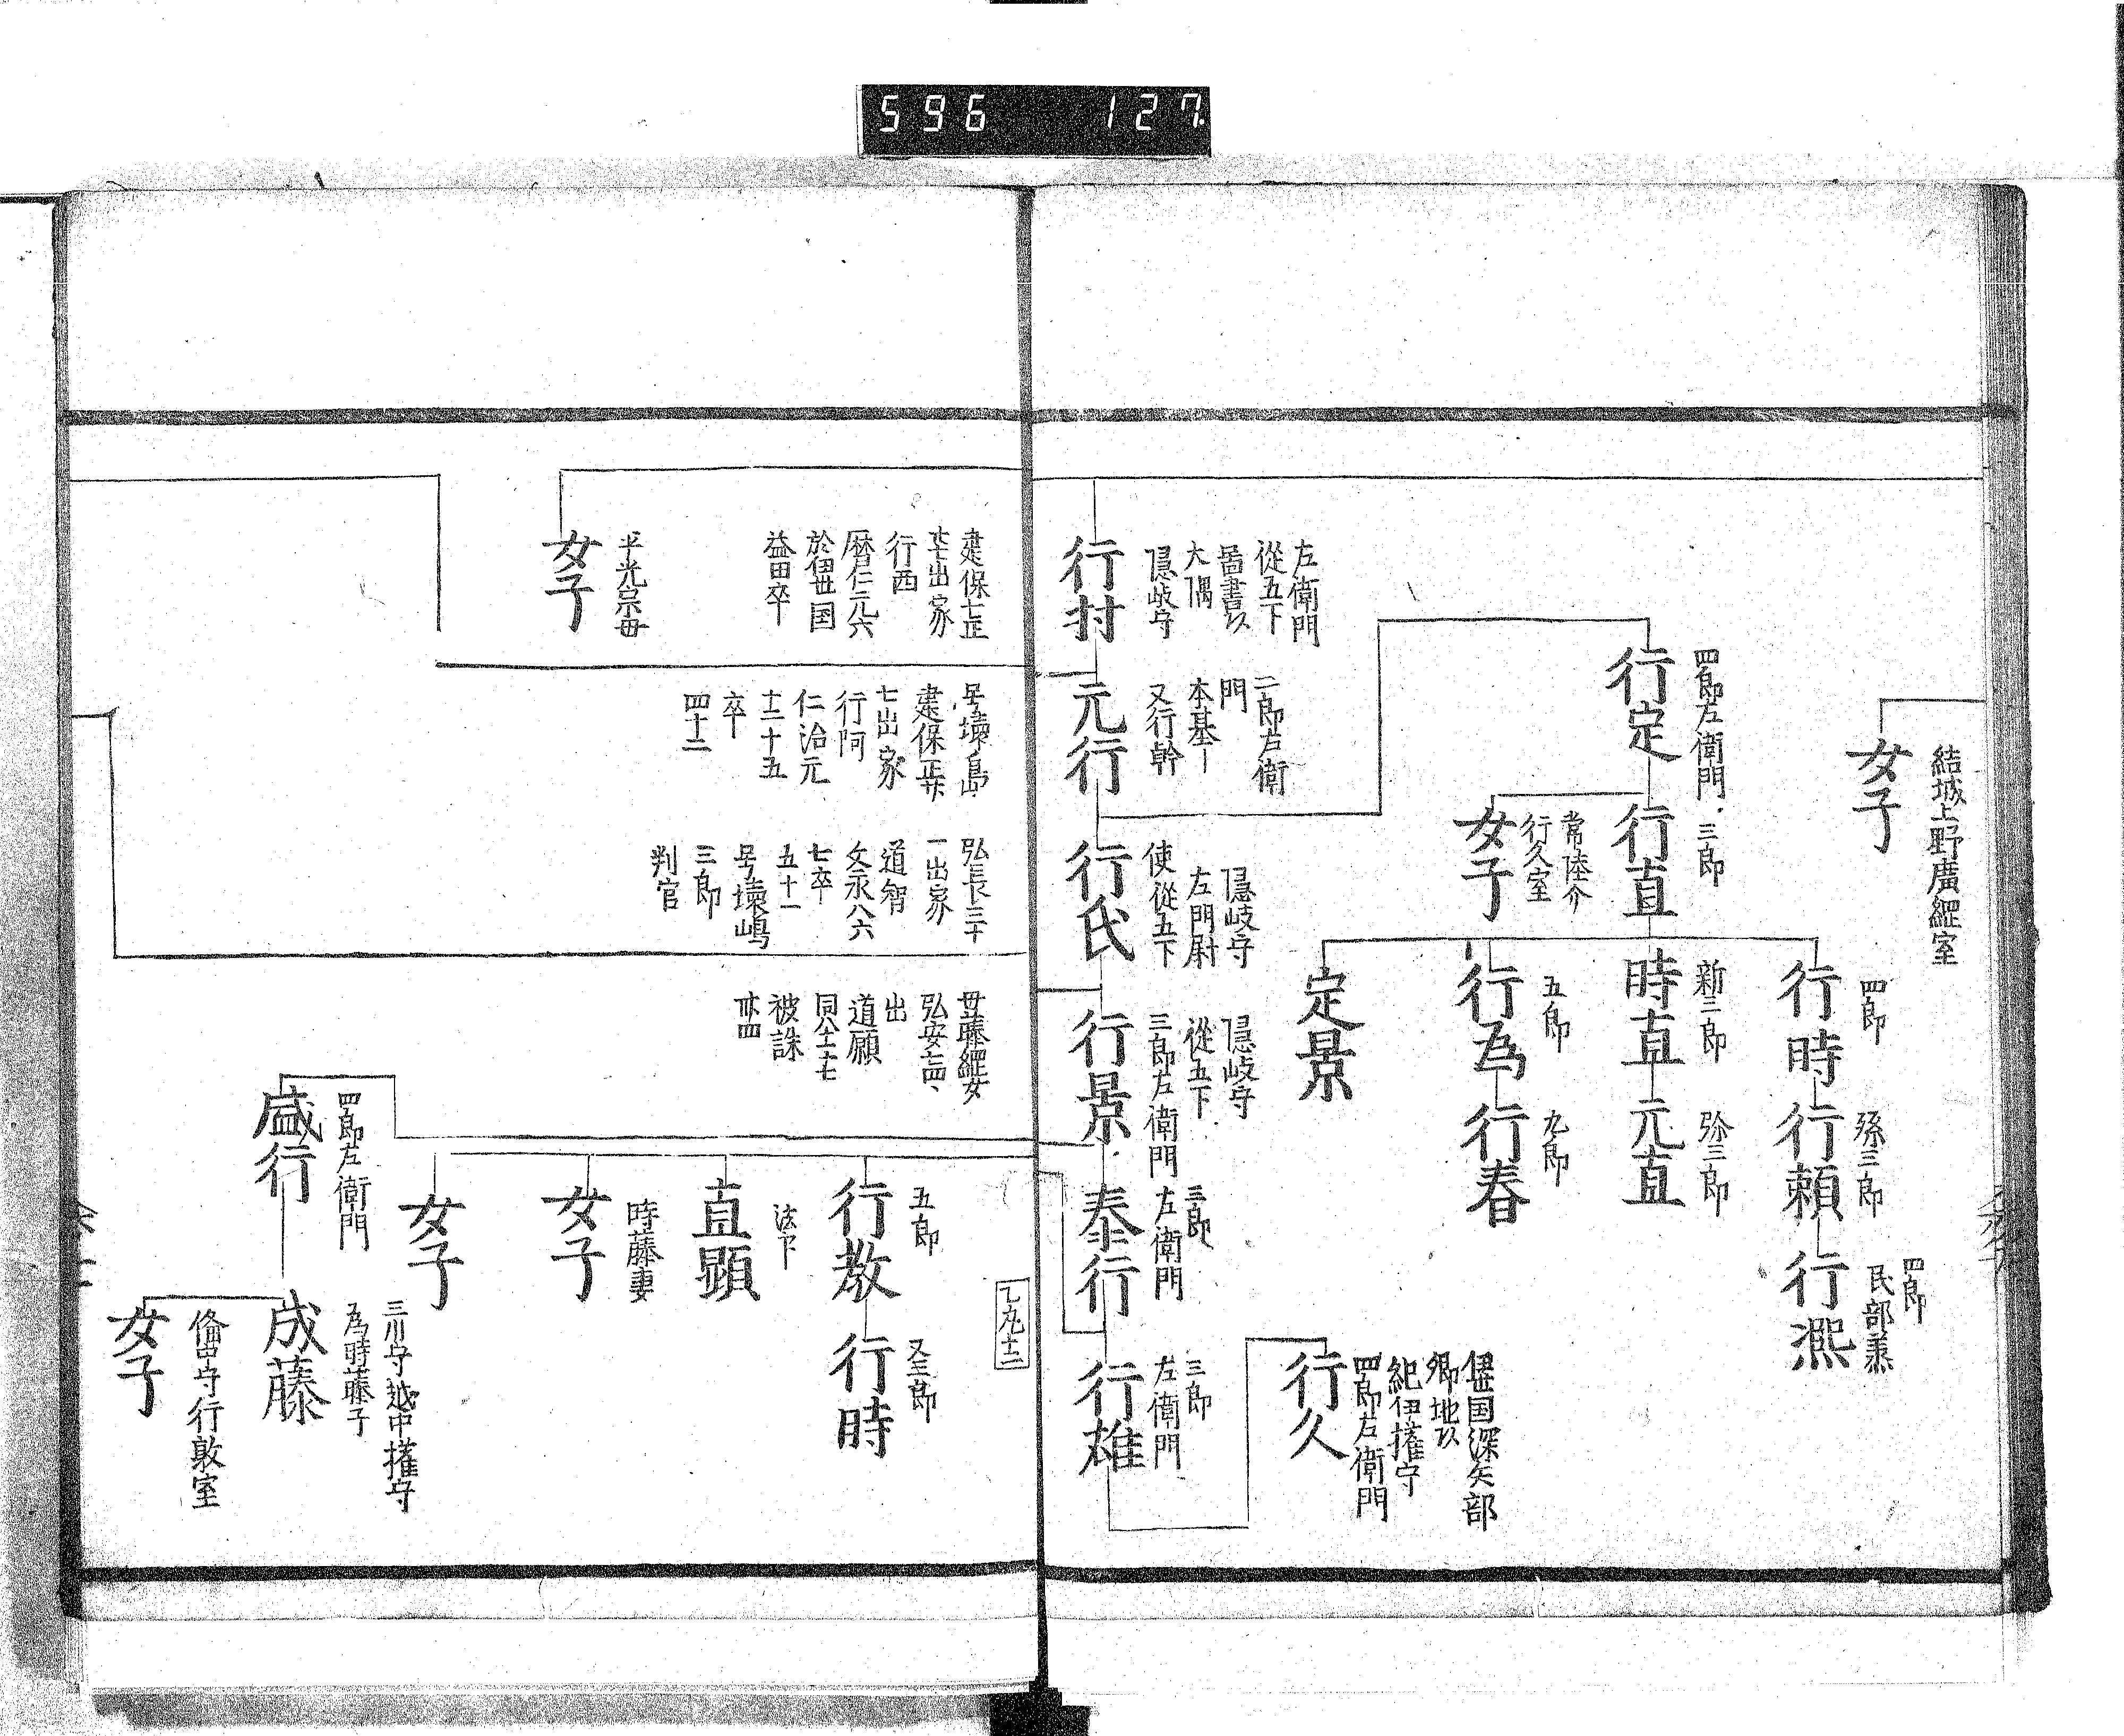 596 127
結城上野廣綱室
女子
四郎左衛門
行定
三郎
行直
常陸介
行久室
女子
四郎
行時
孫三郎
行頼
四郎
民部丞
行凞
新三郎
時直
弥三郎
元直
五郎
行為
九郎
行春
定景
左衛門
從五下
大隅
隠岐守
行村
二郎左衛
門
本基一
又行幹
元行
隠岐守
左門尉
使從五下
行氏
隠岐守
從五下
三郎左衛門
行景
三郎
左衛門
泰行
三郎
左衛門
行雄
伊世国深矢部
郷地以
紀伊権守
四郎左衛門
行久
建保七正
廿七出家
行西
暦仁元六
於伊世国
益田卒
平光宗母
女子
七出家
行阿
仁治元
十二十五
卒
四十二
弘長三十
一出家
道智
文永八六
七卒
五十一
号壊嶋
三郎
判官
母藤縄女
出
道願
被誅
卅四
五郎
行教
又三郎
行時
法下
直顕
時藤妻
女子
女子
四郎左衛門
盛行
三川守越中権守
為時藤子
成藤
行敦室
女子